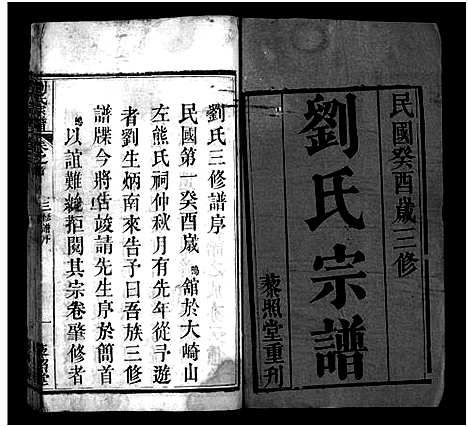 民國癸酉歲三修
劉氏宗譜
藜照堂重刊
劉氏三修譜序
民國第一癸酉歲鴻舘於大崎山
左熊氏祠仲秋月有先年從予遊
者劉生炳南來告予曰吾族三修
譜牒今將告竣請先生序於簡首
鴻以誼難拒閱其宗卷肇修者
劉氏宗譜 卷之首 三修譜序 一 藜照堂